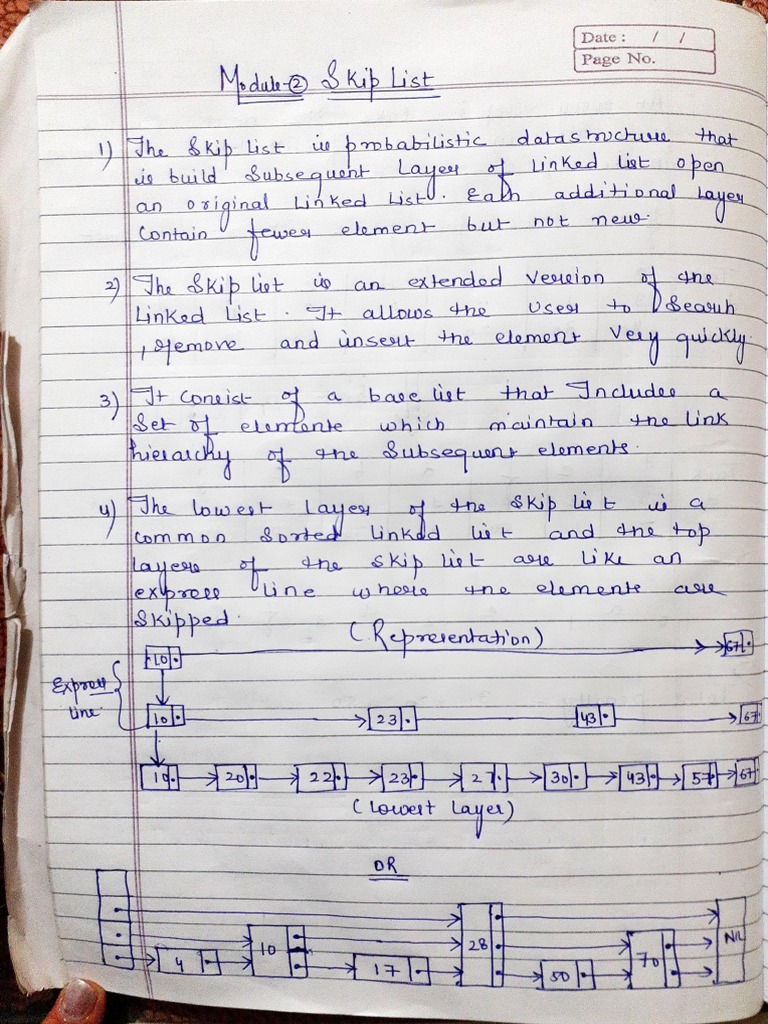 Date : / /
Page No.
Module-② Skip List
1) The Skip List is probabilistic datastructure that
is build Subsequent Layer of Linked list open
an original Linked List. Each additional Layer
Contain fewer element but not new.
2) The Skip list is an extended Version of the
Linked List. It allows the User to Search
, remove and insert the element Very quickly.
3) It Consist of a base list that Includes a
Set of elements which maintain the link
hierarchy of the Subsequent elements.
4) The lowest Layer of the Skip list is a
common Sorted linked list and the top
layers of the skip list are like an
express line where the elements are
Skipped.
(Representation)
10 67
Express
line
10 23 43 67
10 20 22 23 27 30 43 57 67
(Lowest Layer)
OR
4 10 17 28 50 70 NIL